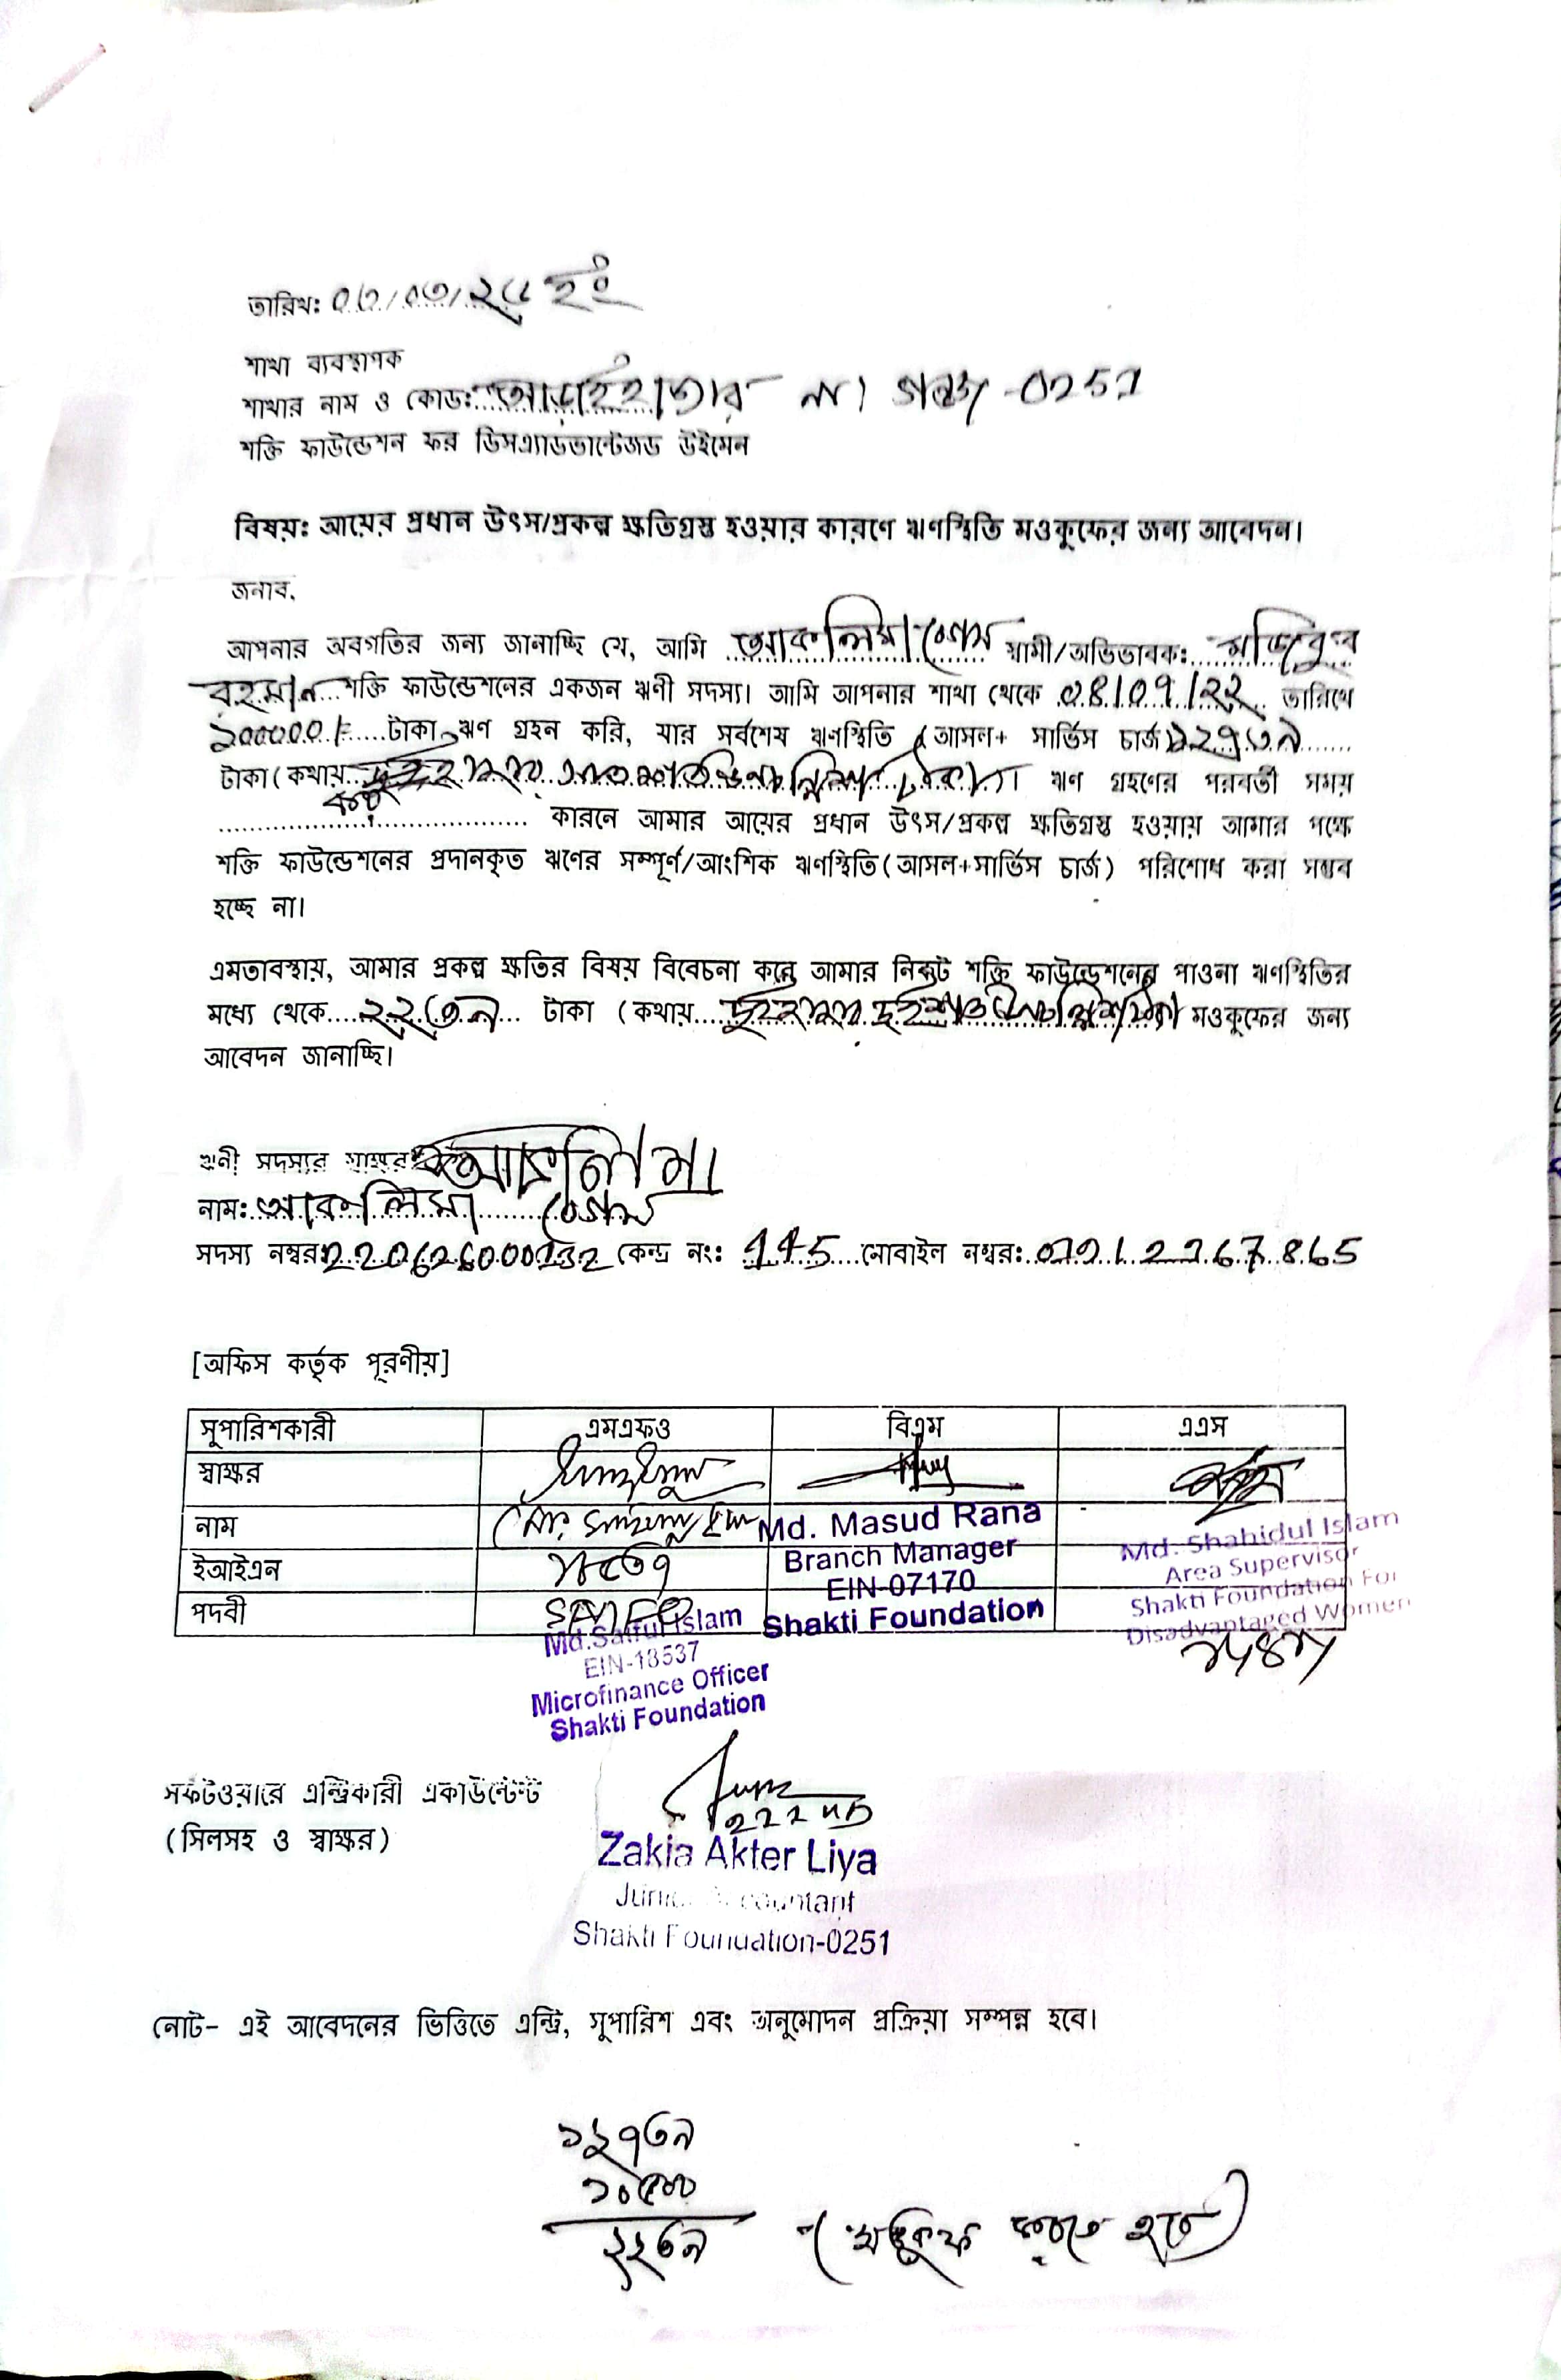 তারিখ: ০৩/০৩/২৫ ইং
শাখা ব্যবস্থাপক
শাখার নাম ও কোড: আড়াইহাজার না। গঞ্জ -0251
শক্তি ফাউন্ডেশন ফর ডিসএ্যাডভান্টেজড উইমেন
বিষয়: আয়ের প্রধান উৎস/প্রকল্প ক্ষতিগ্রস্ত হওয়ার কারণে ঋণস্থিতি মওকুফের জন্য আবেদন।
জনাব,
আপনার অবগতির জন্য জানাচ্ছি যে, আমি আকলিমা বেগম স্বামী/অভিভাবক: মজিবুর
রহমান শক্তি ফাউন্ডেশনের একজন ঋণী সদস্য। আমি আপনার শাখা থেকে ০৪/০৭/২২ তারিখে
১০০০০০/= টাকা ঋণ গ্রহন করি, যার সর্বশেষ ঋণস্থিতি (আসল+ সার্ভিস চার্জ) ১২৭৩৯
টাকা (কথায় টাকা)। ঋণ গ্রহণের পরবর্তী সময়
কারনে আমার আয়ের প্রধান উৎস/প্রকল্প ক্ষতিগ্রস্ত হওয়ায় আমার পক্ষে
শক্তি ফাউন্ডেশনের প্রদানকৃত ঋণের সম্পূর্ণ/আংশিক ঋণস্থিতি(আসল+সার্ভিস চার্জ) পরিশোধ করা সম্ভব
হচ্ছে না।
এমতাবস্থায়, আমার প্রকল্প ক্ষতির বিষয় বিবেচনা করে আমার নিকট শক্তি ফাউন্ডেশনের পাওনা ঋণস্থিতির
মধ্যে থেকে ২২৩৯ টাকা (কথায় দুইহাজার দুইশত উনচল্লিশ টাকা) মওকুফের জন্য
আবেদন জানাচ্ছি।
ঋণী সদস্যর স্বাক্ষর: আকলিমা
নাম: আকলিমা বেগম
সদস্য নম্বর: 220626000132 কেন্দ্র নং: 115 মোবাইল নম্বর:
[অফিস কর্তৃক পূরণীয়]
সুপারিশকারী এমএফও বিএম এএস
স্বাক্ষর
নাম মোঃ সাইফুল ইসলাম Md. Masud Rana Md. Shahidul Islam
Branch Manager Area Supervisor
ইআইএন ১৮৫৩৭ EIN-07170 Shakti Foundation For
পদবী SMFO Shakti Foundation Disadvantaged Women
Md.Saiful Islam
EIN-18537
Microfinance Officer
Shakti Foundation
সফটওয়ারে এন্ট্রিকারী একাউন্টেন্ট
(সিলসহ ও স্বাক্ষর)
Zakia Akter Liya
Junior Accountant
Shakti Foundation-0251
নোট- এই আবেদনের ভিত্তিতে এন্ট্রি, সুপারিশ এবং অনুমোদন প্রক্রিয়া সম্পন্ন হবে।
১২৭৩৯
১০৫০০
২২৩৯ (মওকুফ করতে হবে)